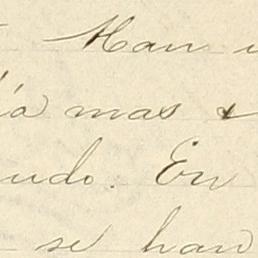 Han
ía mas
udo. En
se han